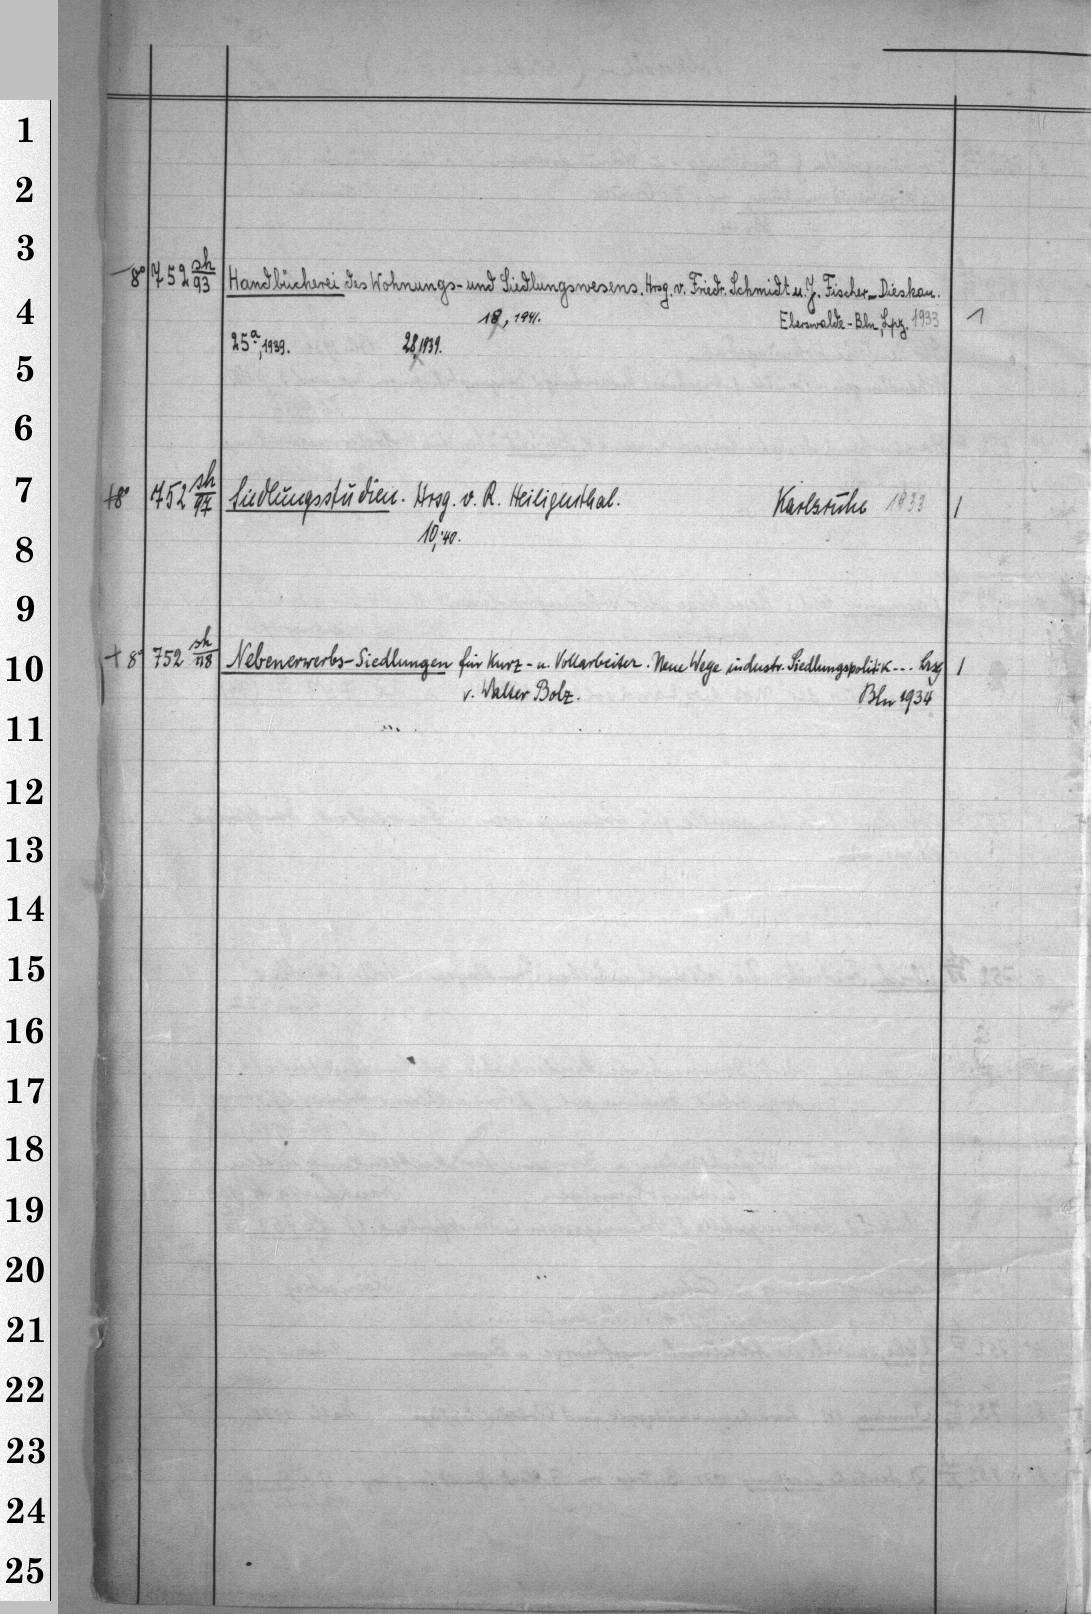 1
2
3
– 8° 752 sh/93 Handbücherei des Wohnungs- und Siedlungswesens. Hrsg. v. Friedr. Schmidt u. J. Fischer-Dieskau.
4 18, 1941. Eberswalde-Bln, Lpz. 1933 1
25a, 1939. 28, 1939.
5
6
7 +8° 752 sh/97 Siedlungsstudien. Hrsg. v. R. Heiligenthal. Karlsruhe 1933 1
10, '40.
8
9
10 + 8° 752 sh/118 Nebenerwerbs-Siedlungen für Kurz- u. Vollarbeiter. Neue Wege industr. Siedlungspolitik... hrsg 1
v. Walter Bolz. Bln 1934
11
12
13
14
15
16
17
18
19
20
21
22
23
24
25